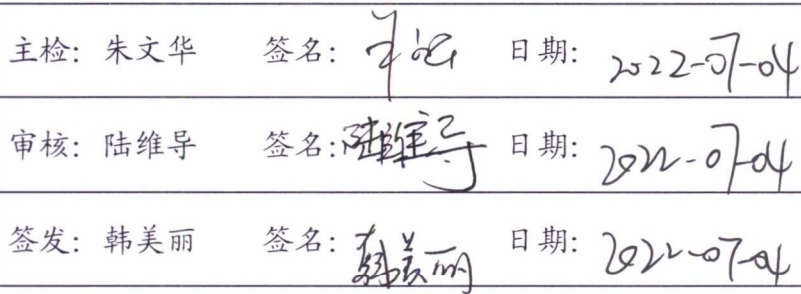 主检：朱文华 签名： 日期：2022-07-04
审核：陆维导 签名：陆维导 日期：2022-07-04
签发：韩美丽 签名：韩美丽 日期：2022-07-04